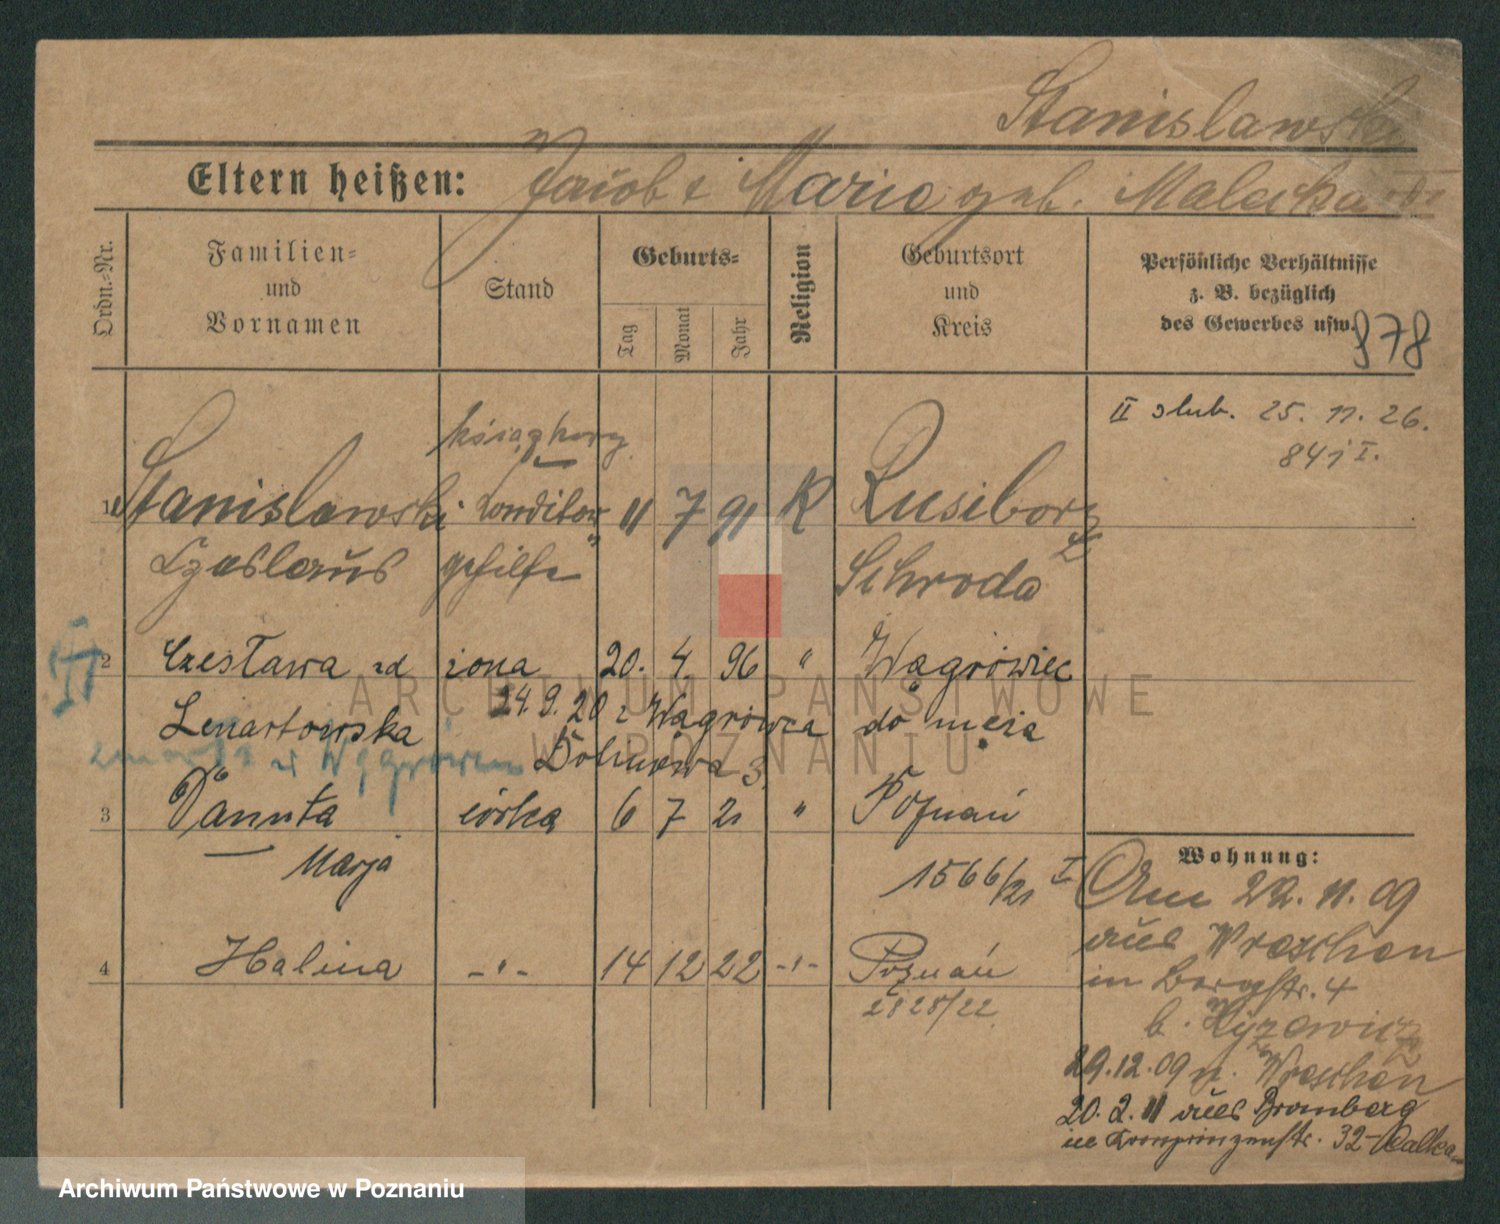 Stanislawski
Eltern heißen: Jacob & Marie geb. Malecka
Ordn.-Nr.
Familien-
und
Vornamen
Stand
Geburts-
Tag
Monat
Jahr
Religion
Geburtsort
und
Kreis
Persönliche Verhältnisse
z. B. bezüglich
des Gewerbes usw.
878
II ślub. 25. 11. 26.
841 I.
książkowy
1 Stanislawski Conditor 11 7 91 K Rusiborz
Czeslaus gehilfe Schroda
II
2 Czesława zd żona 20. 4. 96 " Wągrówiec
Lenartowska 24.9.20 z Wągrówca do męża
zmarła w Wągrówcu
3 Danuta córka 6 7 21 " Poznań
Marja
1566/21 I
4 Halina -"- 14 12 22 -"- Poznań
2828/22
Wohnung:
Am 22. 11. 09
aus Wreschen
in Bergstr. 4
b.
29.12.09 n. Wreschen
20. 2. 11 aus Bromberg
in Kronprinzenstr. 32
ARCHIWUM PAŃSTWOWE
W POZNANIU
Archiwum Państwowe w Poznaniu